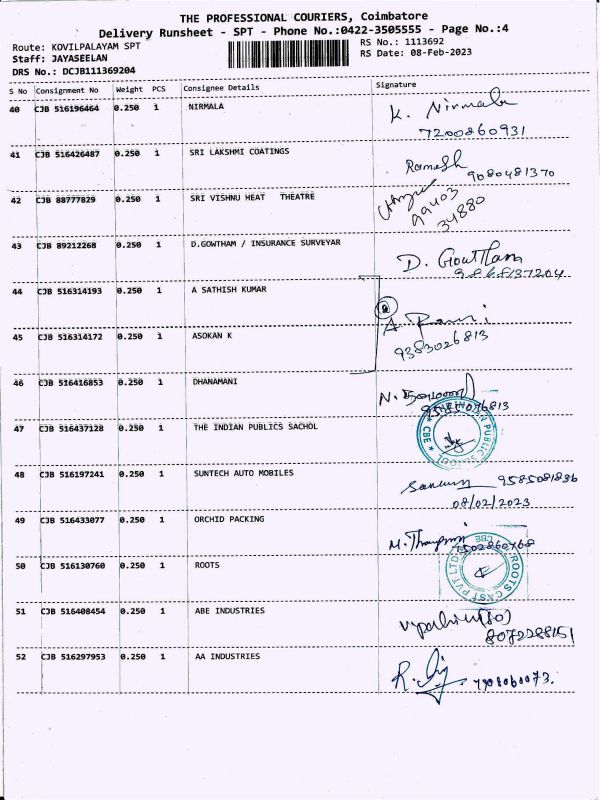 THE PROFESSIONAL COURIERS, Coimbatore
Delivery Runsheet - SPT - Phone No.:0422-3505555 - Page No.:4
Route: KOVILPALAYAM SPT
RS No.: 1113692
Staff: JAYASEELAN
RS Date: 08-Feb-2023
DRS No.: DCJB111369204
S No Consignment No Weight PCS Consignee Details Signature
40 CJB 516196464 0.250 1 NIRMALA K. Nirmala
7200860931
41 CJB 516426487 0.250 1 SRI LAKSHMI COATINGS Ramesh
9080481370
42 CJB 88777829 0.250 1 SRI VISHNU HEAT THEATRE
99403
34880
43 CJB 89212268 0.250 1 D.GOWTHAM / INSURANCE SURVEYAR D. Gowtham
9868137204
44 CJB 516314193 0.250 1 A SATHISH KUMAR
45 CJB 516314172 0.250 1 ASOKAN K A Rani
9383026813
46 CJB 516416853 0.250 1 DHANAMANI N.
9585076813
47 CJB 516437128 0.250 1 THE INDIAN PUBLICS SACHOL
CBE PUBLIC SCHOOL
48 CJB 516197241 0.250 1 SUNTECH AUTO MOBILES 9585081836
08/02/2023
49 CJB 516433077 0.250 1 ORCHID PACKING M.
7502860768
50 CJB 516130760 0.250 1 ROOTS
ROOTS CAST PVT LTD CBE
51 CJB 516408454 0.250 1 ABE INDUSTRIES
8072288151
52 CJB 516297953 0.250 1 AA INDUSTRIES R.